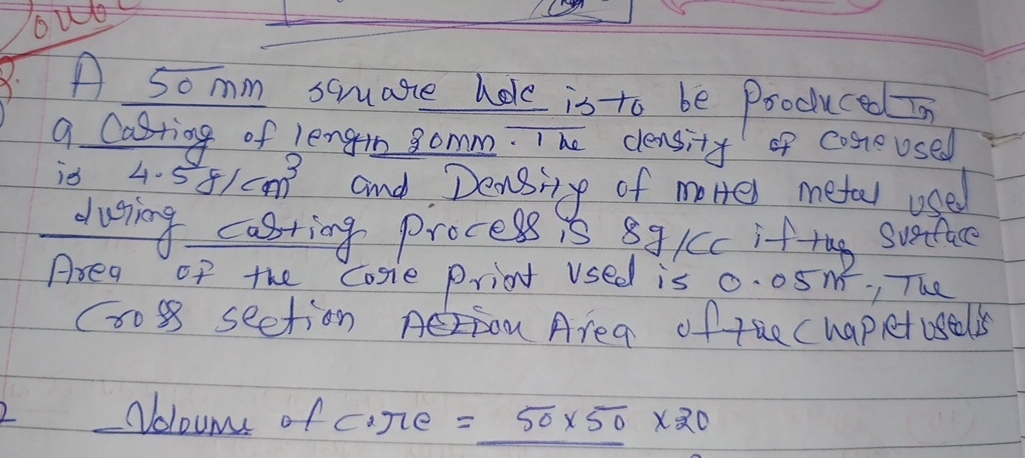 Doub
A 50 mm square hole is to be Produced in
a Casting of length 30mm. The density of core used
is 4.5 g/cm³ and Density of molted metal used
during casting Process is 8g/cc if the Surface
Area of the Core print used is 0.05m², The
Cross section Area of the Chaplet used is
Voloume of core = 50 x 50 x 30